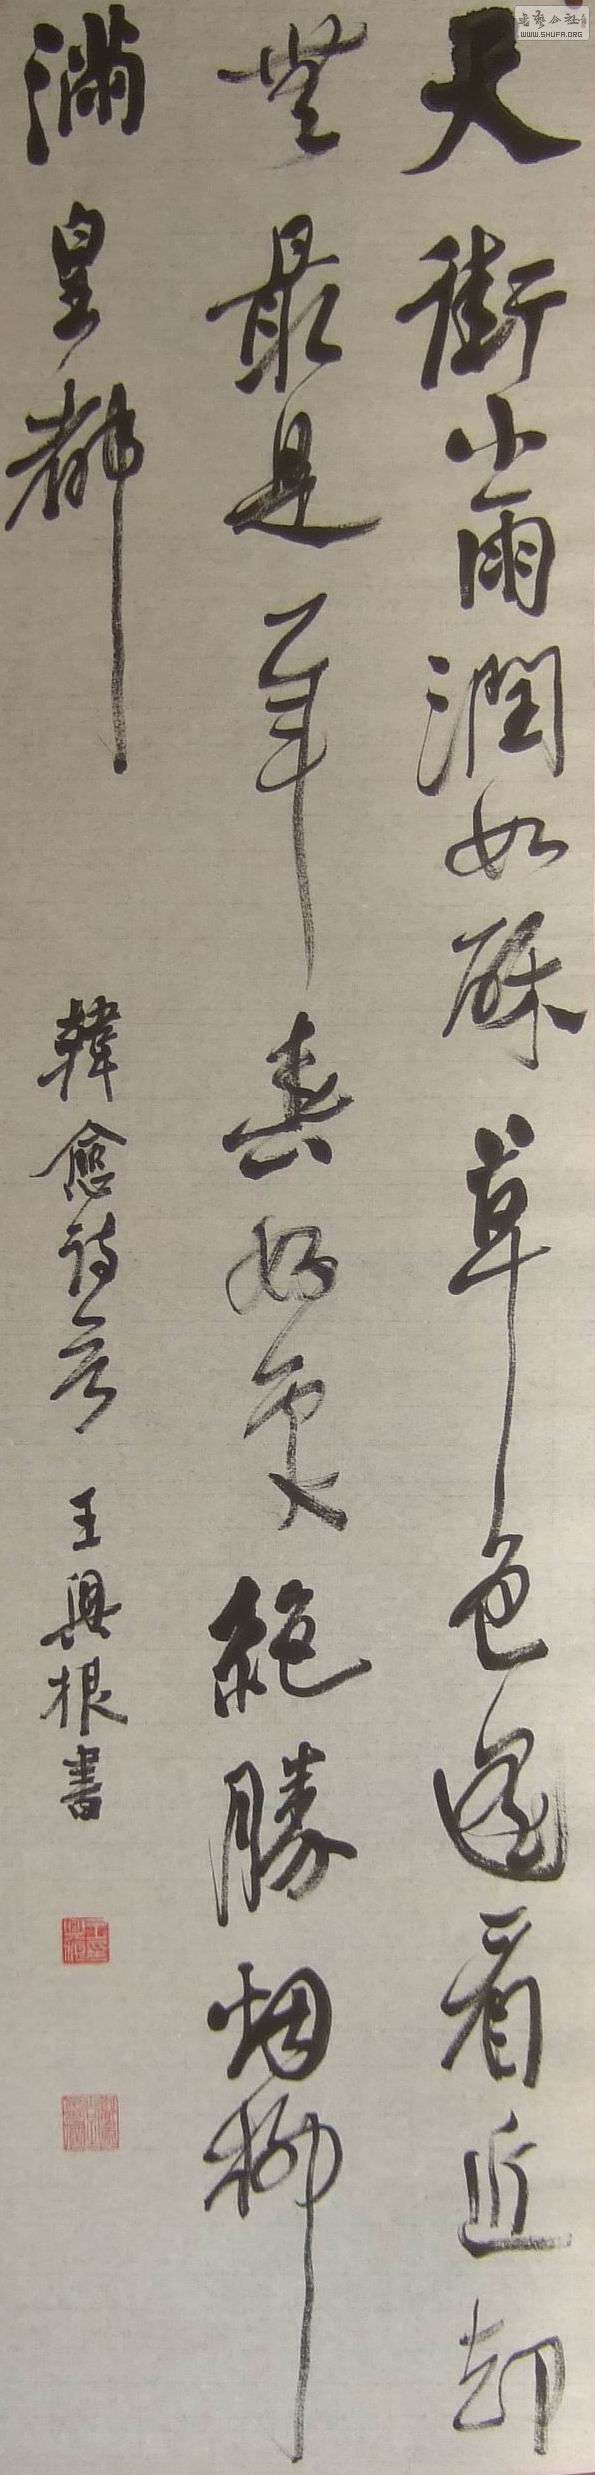 天街小雨潤如酥草色遥看近却
無最是一年春好處絕勝烟柳
滿皇都
韓愈詩意 王興根書
書藝公社
WWW.SHUFA.ORG